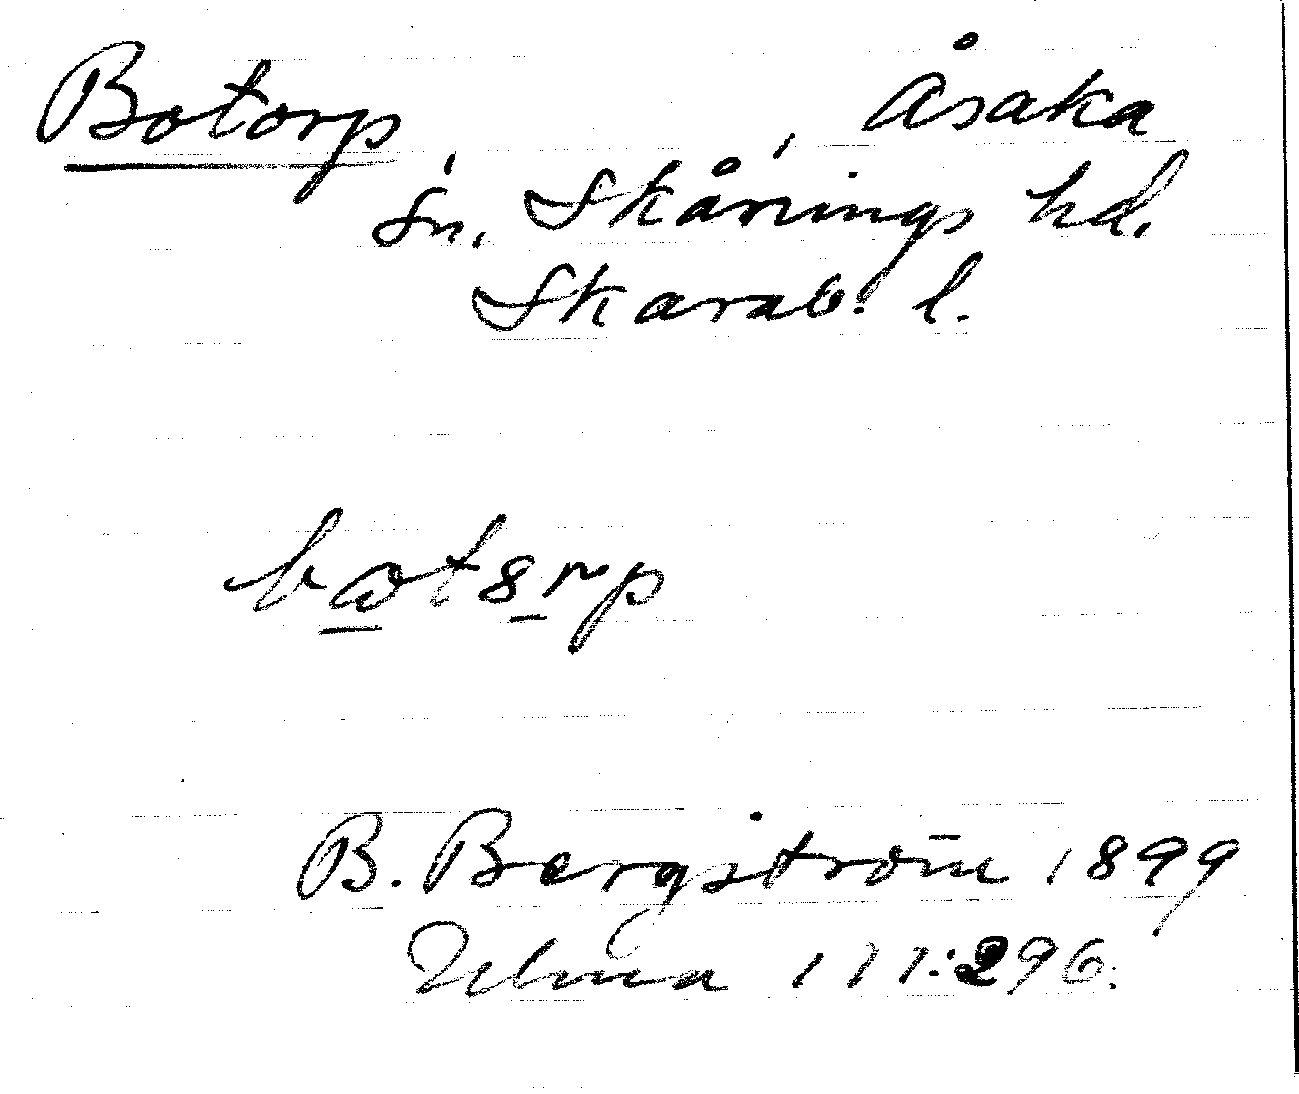 Botorp, Åsaka
sn. Skånings hd.
Skarab. l.
B. Bergström 1899
Ulma 111:296.